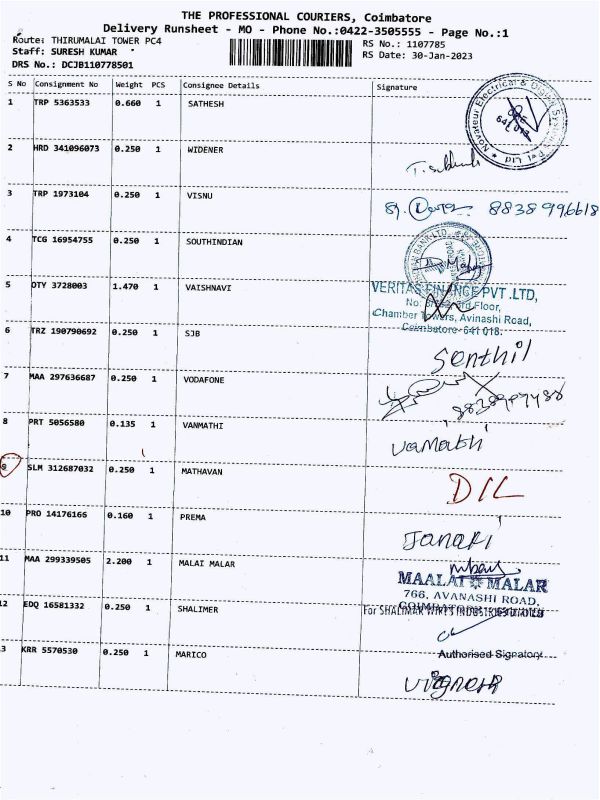 THE PROFESSIONAL COURIERS, Coimbatore
Delivery Runsheet - MO - Phone No.:0422-3505555 - Page No.:1
Route: THIRUMALAI TOWER PC4
RS No.: 1107785
Staff: SURESH KUMAR
RS Date: 30-Jan-2023
DRS No.: DCJB110778501
S No Consignment No Weight PCS Consignee Details Signature
1 TRP 5363533 0.660 1 SATHESH
Novateur Electrical & Digital Systems Pvt Ltd
641 018
2 HRD 341096073 0.250 1 WIDENER
3 TRP 1973104 0.250 1 VISNU
8838996618
4 TCG 16954755 0.250 1 SOUTHINDIAN
BANK LTD.
5 OTY 3728003 1.470 1 VAISHNAVI
VERITAS FINANCE PVT .LTD,
Floor,
Chamber Towers, Avinashi Road,
Coimbatore-641 018.
6 TRZ 190790692 0.250 1 SJB
Senthil
7 MAA 297636687 0.250 1 VODAFONE
8 PRT 5056580 0.135 1 VANMATHI
Vamathi
9 SLM 312687032 0.250 1 MATHAVAN
DIL
10 PRO 14176166 0.160 1 PREMA
Janaki
11 MAA 299339505 2.200 1 MALAI MALAR
MAALAI MALAR
766, AVANASHI ROAD,
12 EDQ 16581332 0.250 1 SHALIMER
For SHALIMAR WIRES INDUSTRIES LIMITED
Authorised Signatory
3 KRR 5570530 0.250 1 MARICO
Vignesh